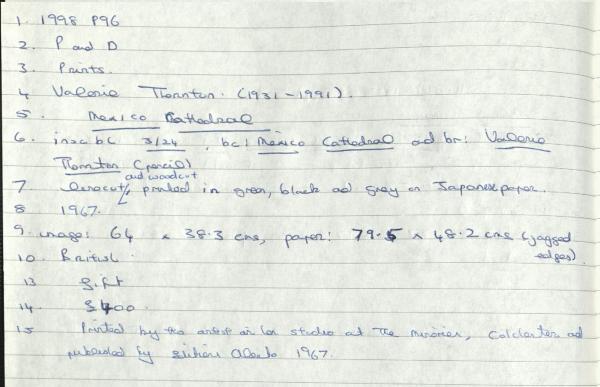 1. 1998 P96
2. P and D
3. Prints.
4 Valerie Thornton. (1931-1991).
5. Mexico Cathedral
6. insc bc 3/24, bc: Mexico Cathedral ad br: Valerie
Thornton (pencil)
and woodcut
7 linocut, printed in green, black ad grey on Japanese paper.
8 1967.
9. image: 64 x 38.3 cms, paper: 79.5 x 48.2 cms (jagged
edges)
10. British.
13 gift
14. 400.
15 Printed by the artist in her studio at The Minories, Colchester ad
published by Editions Alecto 1967.